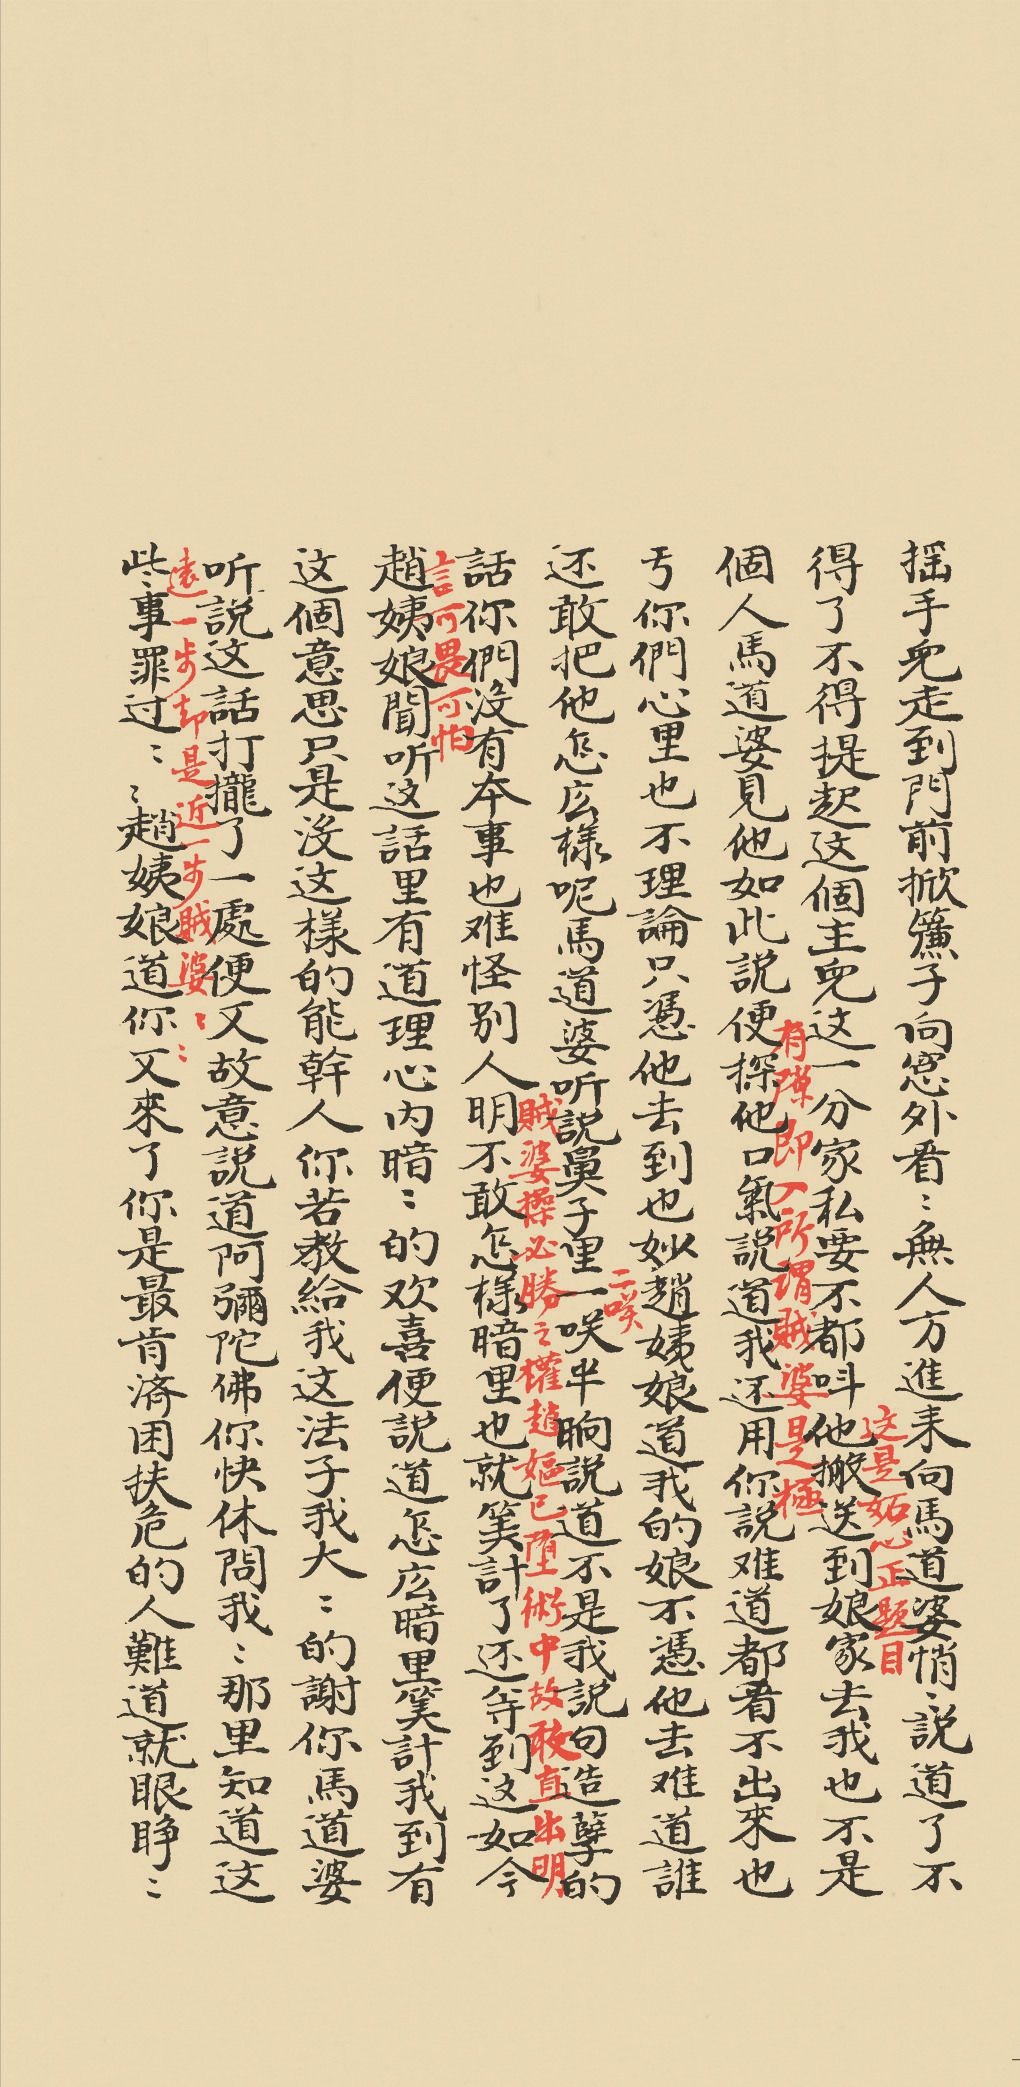 摇手兒走到門前掀簾子向窓外看〻無人方進来向馬道婆悄〻說道了不
得了不得提起这個主兒这一分家私要不都呌他搬送到娘家去我也不是
这是妬心正題目
個人馬道婆見他如此說便探他口氣說道我还用你說难道都看不出來也
有隙即入所謂賊婆是極
亏你們心里也不理論只憑他去到也妙趙姨娘道我的娘不憑他去难道誰
还敢把他怎庅樣呢馬道婆听說鼻子里一咲半晌說道不是我說句造孽的
二咲
話你們没有本事也难怪别人明不敢怎樣暗里也就筭計了还等到这如今
賊婆操必勝之權趙嫗已堕術中故敢直出明
言可畏可怕
趙姨娘聞听这話里有道理心内暗〻的欢喜便說道怎庅暗里筭計我到有
这個意思只是没这樣的能幹人你若教給我这法子我大〻的謝你馬道婆
听說这話打攏了一處便又故意說道阿彌陀佛你快休問我〻那里知道这
遠一步却是近一步賊婆〻〻
些事罪过〻〻趙姨娘道你又來了你是最肯済困扶危的人難道就眼睁〻